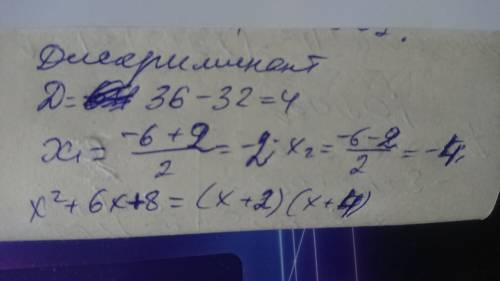 Дискриминант
D = 36 - 32 = 4
x₁ = (-6 + 2)/2 = -2; x₂ = (-6 - 2)/2 = -4;
x² + 6x + 8 = (x + 2)(x + 4)